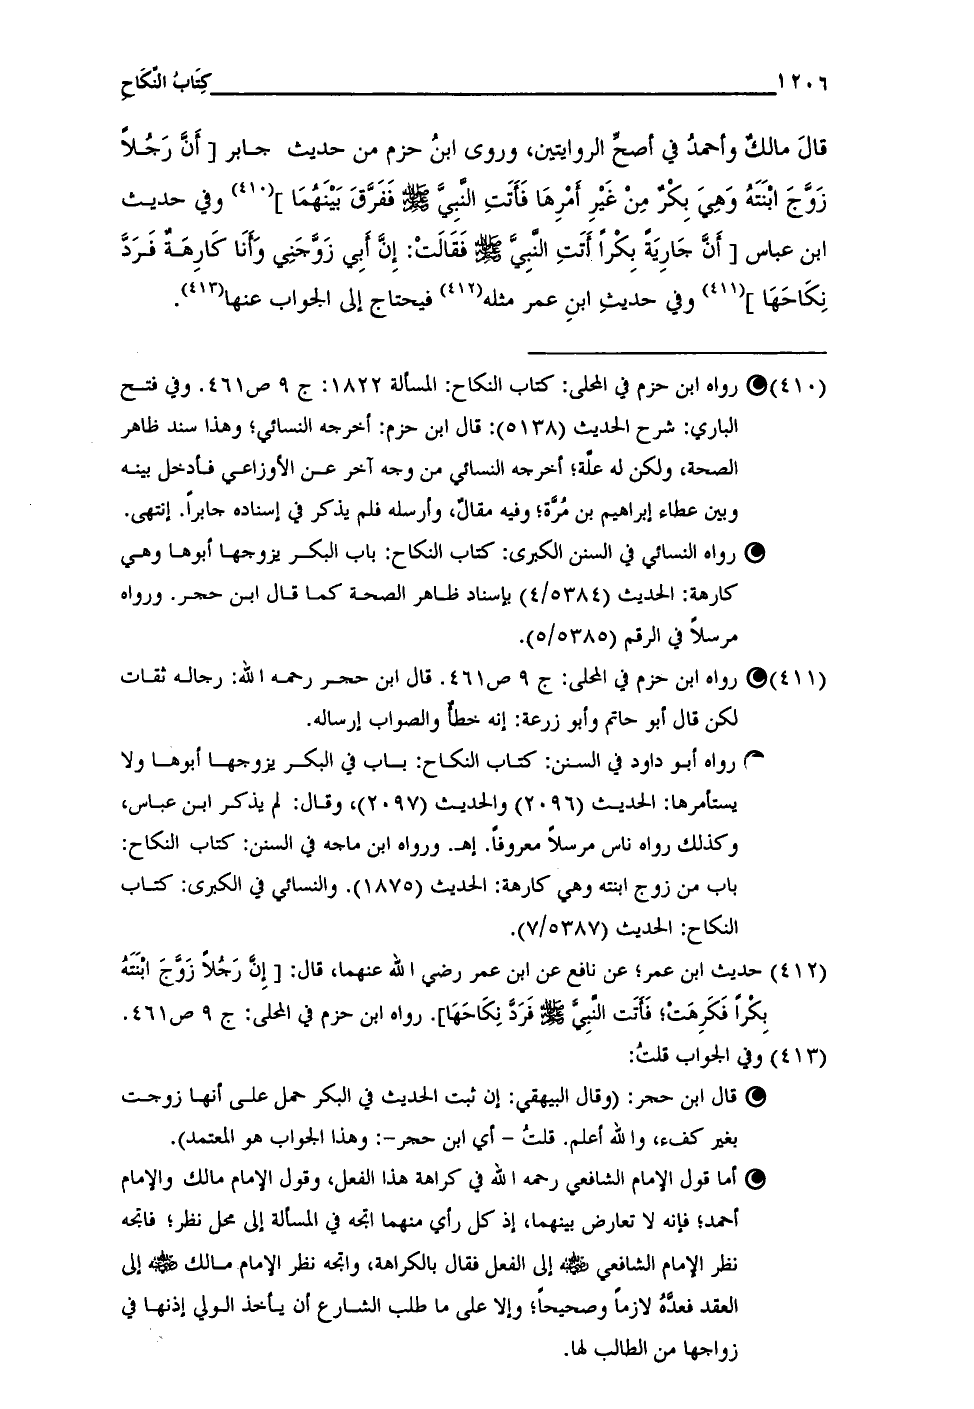 ١٢٠٦ كِتَابُ النِّكَاحِ
قالَ مالكٌ وأحمدُ في أصحِّ الروايتين، وروى ابنُ حزم من حديث جـابر [ أَنَّ رَجُـلاً
زَوَّجَ ابْنَتَهُ وَهِيَ بِكْرٌ مِنْ غَيْرِ أَمْرِهَا فَأَتَتِ النَّبِيَّ ﷺ فَفَرَّقَ بَيْنَهُمَا ](٤١٠) وفي حديـث
ابن عباس [ أَنَّ جَارِيَةً بِكْراً أَتَتِ النَّبِيَّ ﷺ فَقَالَتْ: إِنَّ أَبِي زَوَّجَنِي وَأَنَا كَارِهَـةٌ فَـرَدَّ
نِكَاحَهَا ](٤١١) وفي حديثِ ابنِ عمر مثله(٤١٢) فيحتاج إلى الجواب عنها(٤١٣).
(٤١٠) رواه ابن حزم في المحلى: كتاب النكاح: المسألة ١٨٢٢: ج ٩ ص٤٦١. وفي فتـح
الباري: شرح الحديث (٥١٣٨): قال ابن حزم: أخرجه النسائي؛ وهذا سند ظاهر
الصحة، ولكن له علّة؛ أخرجه النسائي من وجه آخر عـن الأوزاعي فـأدخل بينـه
وبين عطاء إبراهيم بن مُرَّة؛ وفيه مقالٌ، وأرسله فلم يذكر في إسناده جابراً. إنتهى.
رواه النسائي في السنن الكبرى: كتاب النكاح: باب البكـر يزوجهـا أبوهـا وهـي
كارهة: الحديث (٤/٥٣٨٤) بإسناد ظـاهر الصحـة كمـا قـال ابـن حجـر. ورواه
مرسلاً في الرقم (٥/٥٣٨٥).
(٤١١) رواه ابن حزم في المحلى: ج ٩ ص٤٦١. قال ابن حجـر رحمـه الله: رجالـه ثقـات
لكن قال أبو حاتم وأبو زرعة: إنه خطأ والصواب إرساله.
رواه أبـو داود في السـنن: كتـاب النكـاح: بـاب في البكـر يزوجهـا أبوهـا ولا
يستأمرها: الحديـث (٢٠٩٦) والحديث (٢٠٩٧)، وقـال: لم يذكـر ابـن عبـاس،
وكذلك رواه ناس مرسلاً معروفاً. إهـ. ورواه ابن ماجه في السنن: كتاب النكاح:
باب من زوج ابنته وهي كارهة: الحديث (١٨٧٥). والنسائي في الكبرى: كتـاب
النكاح: الحديث (٧/٥٣٨٧).
(٤١٢) حديث ابن عمر؛ عن نافع عن ابن عمر رضي الله عنهما، قال: [ إِنَّ رَجُلاً زَوَّجَ ابْنَتَهُ
بِكْراً فَكَرِهَتْ؛ فَأَتَت النَّبِيَّ ﷺ فَرَدَّ نِكَاحَهَا]. رواه ابن حزم في المحلى: ج ٩ ص٤٦١.
(٤١٣) وفي الجواب قلتُ:
قال ابن حجر: (وقال البيهقي: إن ثبت الحديث في البكر حمل علـى أنهـا زوجـت
بغير كفء، والله أعلم. قلتُ - أي ابن حجر-: وهذا الجواب هو المعتمد).
أما قول الإمام الشافعي رحمه الله في كراهة هذا الفعل، وقول الإمام مالك والإمام
أحمد؛ فإنه لا تعارض بينهما، إذ كل رأي منهما اتجه في المسألة إلى محل نظر؛ فاتجه
نظر الإمام الشافعي ﷺ إلى الفعل فقال بالكراهة، واتجه نظر الإمام مـالك ﷺ إلى
العقد فعدَّهُ لازماً وصحيحاً؛ وإلا على ما طلب الشـارع أن يـأخذ الـولي إذنهـا في
زواجها من الطالب لها.